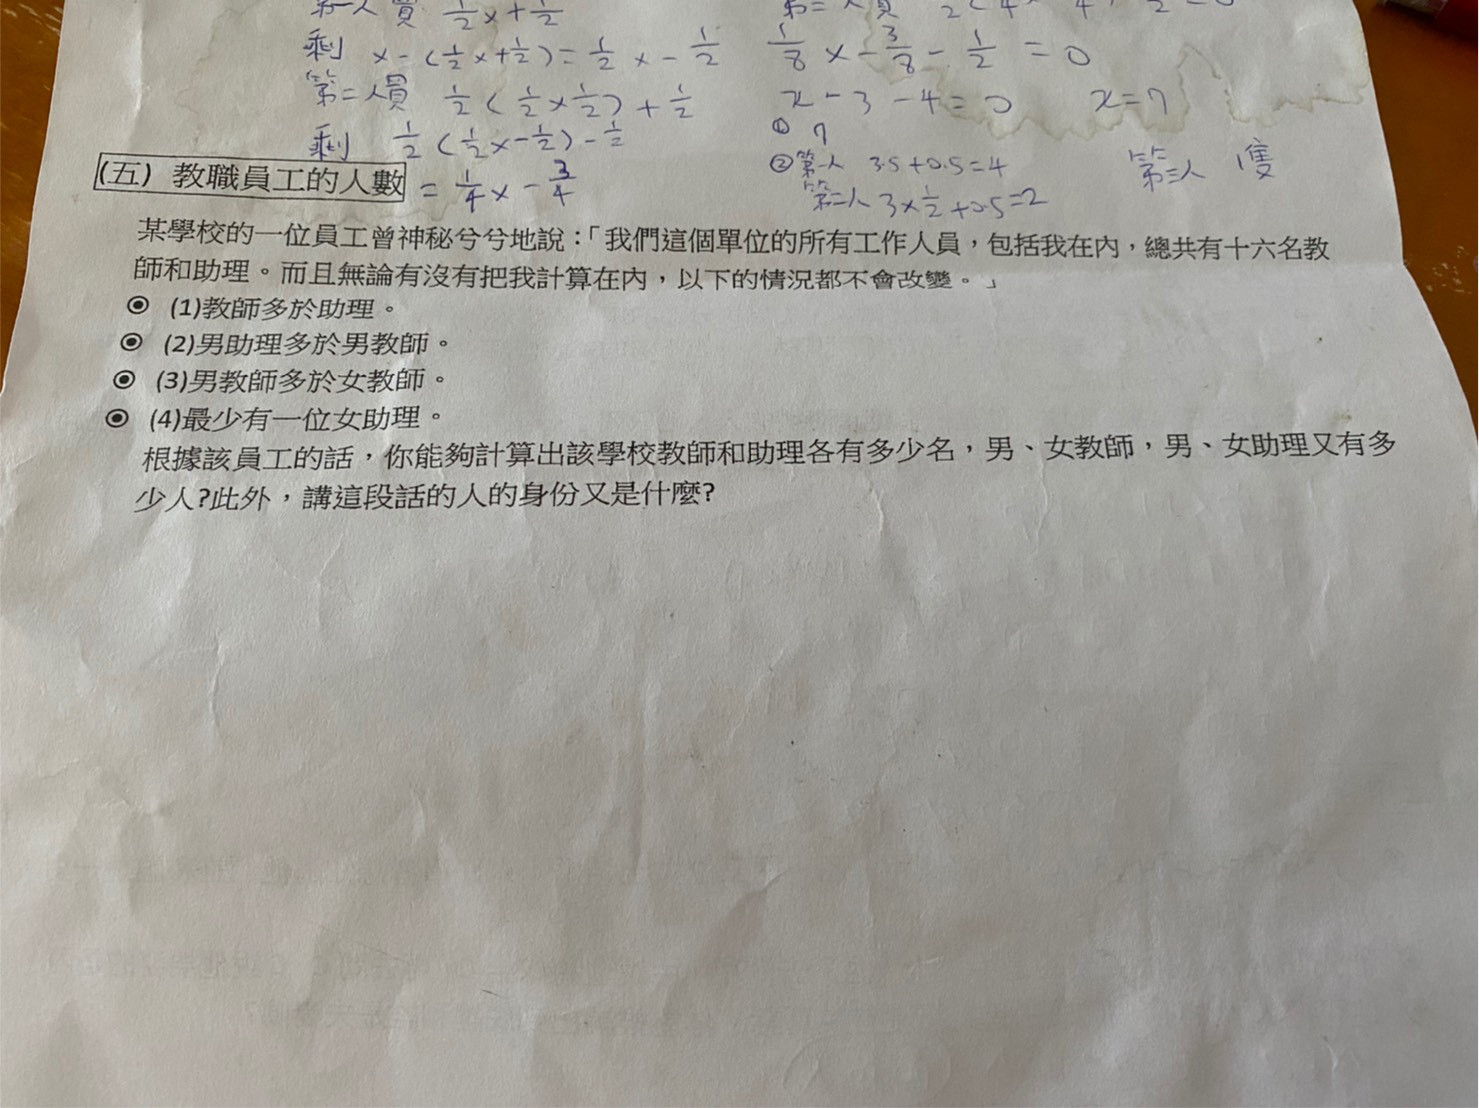 第一人買 1/2x+1/2
剩 x-(1/2x+1/2)=1/2x-1/2
第二人買 1/2(1/2x1/2)+1/2
剩 1/2(1/2x-1/2)-1/2
=1/4x-3/4
1/8x-3/8-1/2=0
x-3-4=0 x=7
① 7
②第一人 3.5+0.5=4
第二人 3×1/2+0.5=2
第三人 1隻
(五) 教職員工的人數
某學校的一位員工曾神秘兮兮地說：「我們這個單位的所有工作人員，包括我在內，總共有十六名教
師和助理。而且無論有沒有把我計算在內，以下的情況都不會改變。」
(1)教師多於助理。
(2)男助理多於男教師。
(3)男教師多於女教師。
(4)最少有一位女助理。
根據該員工的話，你能夠計算出該學校教師和助理各有多少名，男、女教師，男、女助理又有多
少人?此外，講這段話的人的身份又是什麼?